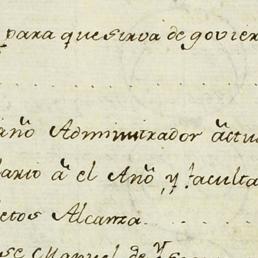 para que sirva de govier
año Administrador actu
lario a el Año, y faculta
etos Alcanza
se Manuel de